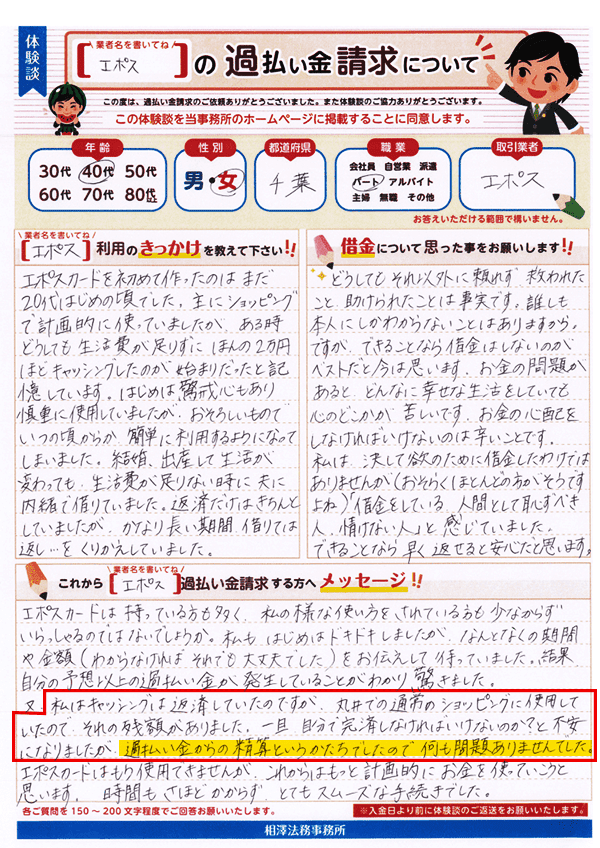 体験談
業者名を書いてね
[エポス]の過払い金請求について
この度は、過払い金請求のご依頼ありがとうございました。また体験談のご協力ありがとうございます。
この体験談を当事務所のホームページに掲載することに同意します。
年齢
30代 40代 50代
60代 70代 80代以上
性別
男・女
都道府県
千葉
職業
会社員 自営業 派遣
パート アルバイト
主婦 無職 その他
取引業者
エポス
お答えいただける範囲で構いません。
業者名を書いてね
[エポス]利用のきっかけを教えて下さい!!
エポスカードを初めて作ったのはまだ
20代はじめの頃でした。主にショッピング
で計画的に使っていましたが、ある時
どうしても生活費が足りずに ほんの2万円
ほどキャッシングしたのが 始まりだったと記
憶しています。はじめは、警戒心もあり
慎重に使用していましたが、おそろしいもので
いつの頃からか 簡単に利用するようになって
しまいました。結婚、出産して生活が
変わっても、生活費が足りない時に 夫に
内緒で借りていました。返済だけはきちんと
していましたが、かなり長い期間 借りては
返し…をくりかえしていました。
借金について思った事をお願いします!!
どうしても それ以外に頼れず 救われた
こと、助けられたことは事実です。誰しも
本人にしかわからないことはありますから。
ですが、できることなら借金はしないのが
ベストだと今は思います。お金の問題が
あると、どんなに幸せな生活をしていても
心のどこかが苦しいです。お金の心配を
しなければいけないのは辛いことです。
私は、決して欲のために借金したわけでは
ありませんが(おそらくほとんどの方がそうです
よね)「借金をしている、人間として恥ずべき
人、情けない人」と感じていました。
できることなら早く返せると安心だと思います。
業者名を書いてね
これから[エポス]過払い金請求する方へメッセージ!!
エポスカードは持っている方も多く、私の様な使い方をされている方も少なからず
いらっしゃるのではないでしょうか。私もはじめはドキドキしましたが、なんとなくの期間
や金額(わからなければそれでも大丈夫でした)をお伝えして待っていました。結果
自分の予想以上の過払い金が発生していることがわかり驚きました。
又、私はキャッシングは返済していたのですが、丸井での通常のショッピングに使用して
いたので、それの残額がありました。一旦、自分で完済しなければいけないのか?と不安
になりましたが、過払い金からの精算というかたちでしたので何も問題ありませんでした。
エポスカードはもう使用できませんが、これからはもっと計画的にお金を使っていこうと
思います。時間もさほどかからず、とてもスムーズな手続きでした。
各ご質問を150～200文字程度でご回答お願いいたします。
※入金日より前に体験談のご返送をお願いいたします。
相澤法務事務所